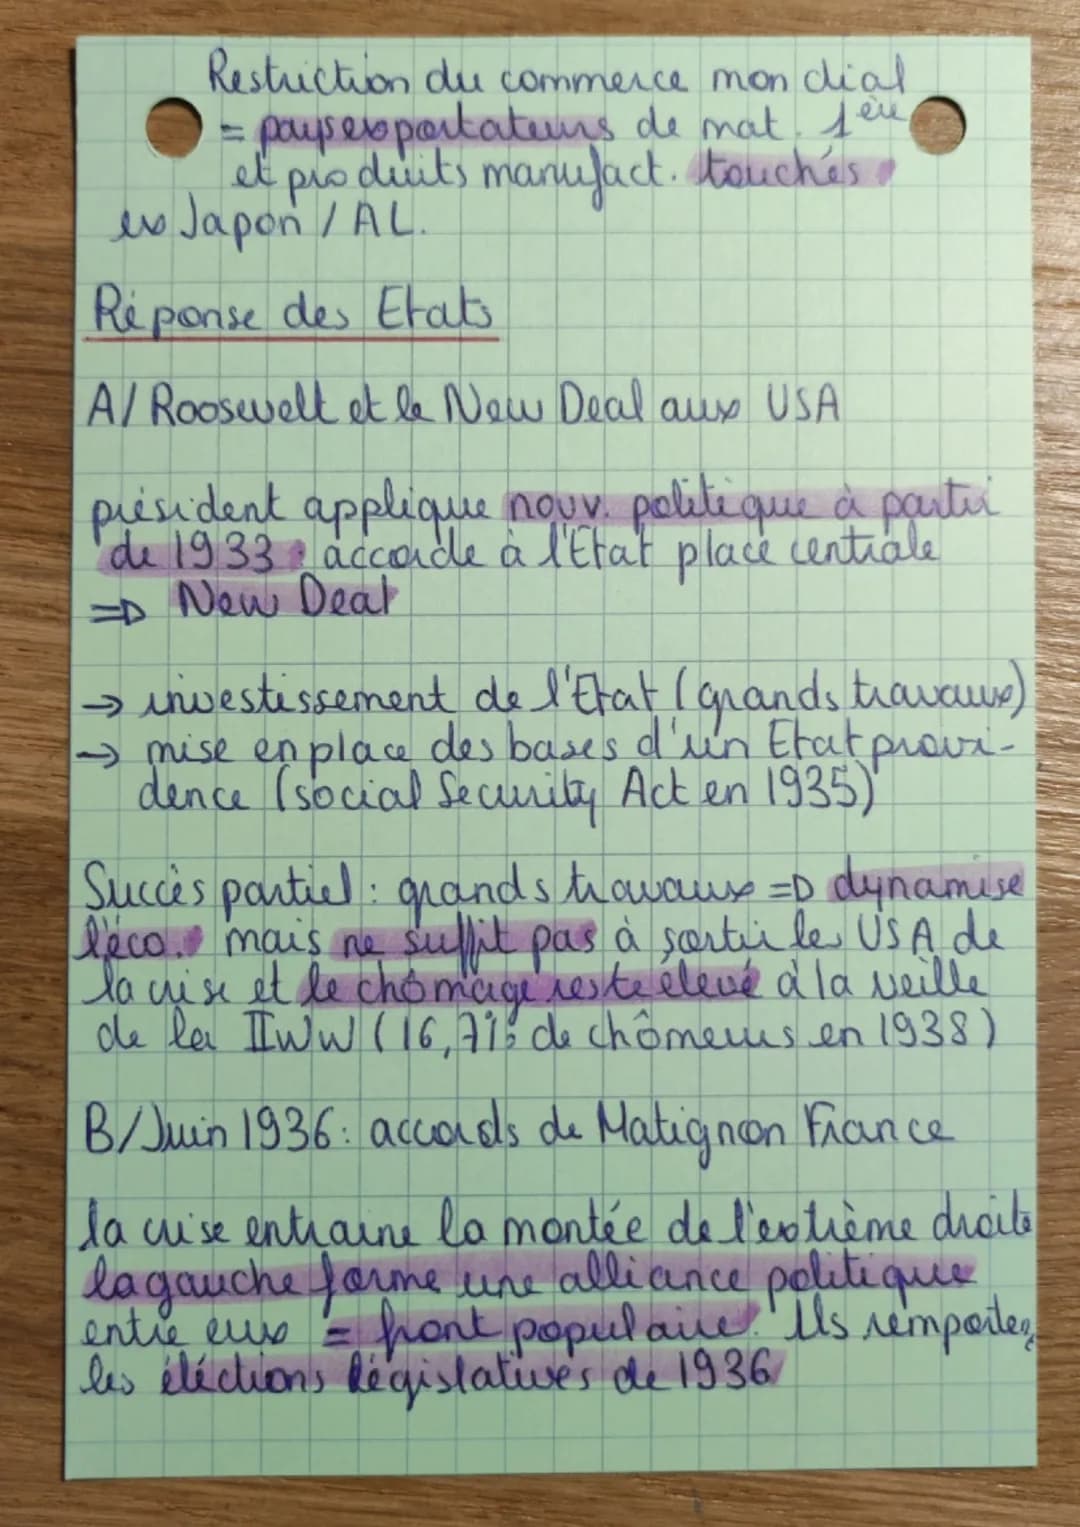 Restriction du commerce mondial
= pays exportateurs de mat. 1ère
et produits manufact. touchés
ex Japon / AL.
Réponse des Etats
A/ Roosevelt et le New Deal aux USA
président applique nouv. politique à partir
de 1933 : accorde à l'Etat place centrale
=> New Deal
→ investissement de l'Etat (grands travaux)
→ mise en place des bases d'un Etat provi-
dence (social Security Act en 1935)
Succès partiel : grands travaux => dynamise
l'éco. mais ne suffit pas à sortir les USA de
la crise et le chômage reste élevé à la veille
de la IIWW (16,7% de chômeurs en 1938)
B/ Juin 1936 : accords de Matignon France
la crise entraine la montée de l'extrème droite
la gauche forme une alliance politique
entre eux = front populaire. Ils remportent
les éléctions législatives de 1936